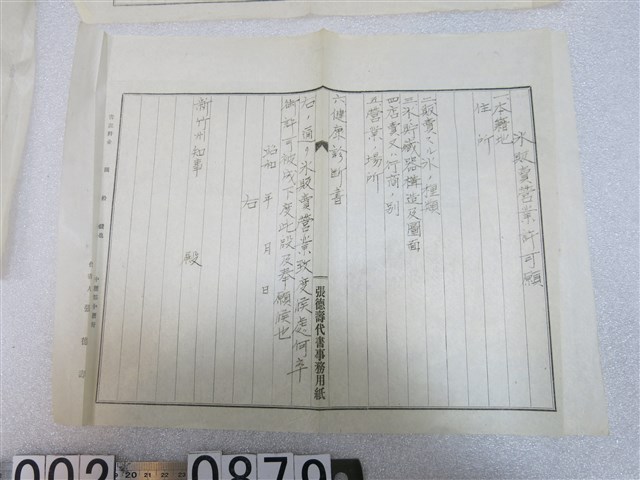 氷販賣營業許可願
一本籍地
住所
二販賣スル氷ノ種類
三氷貯藏器構造及圖面
四店賣又ハ行商ノ別
五營業ノ場所
六健康診断書
張德壽代書事務用紙
右ノ通リ氷販賣營業致度候處何卒
御許可被成下度此段及奉願候也
昭和 年 月 日
右
新竹州知事
殿
002
0879
20 21 22 23